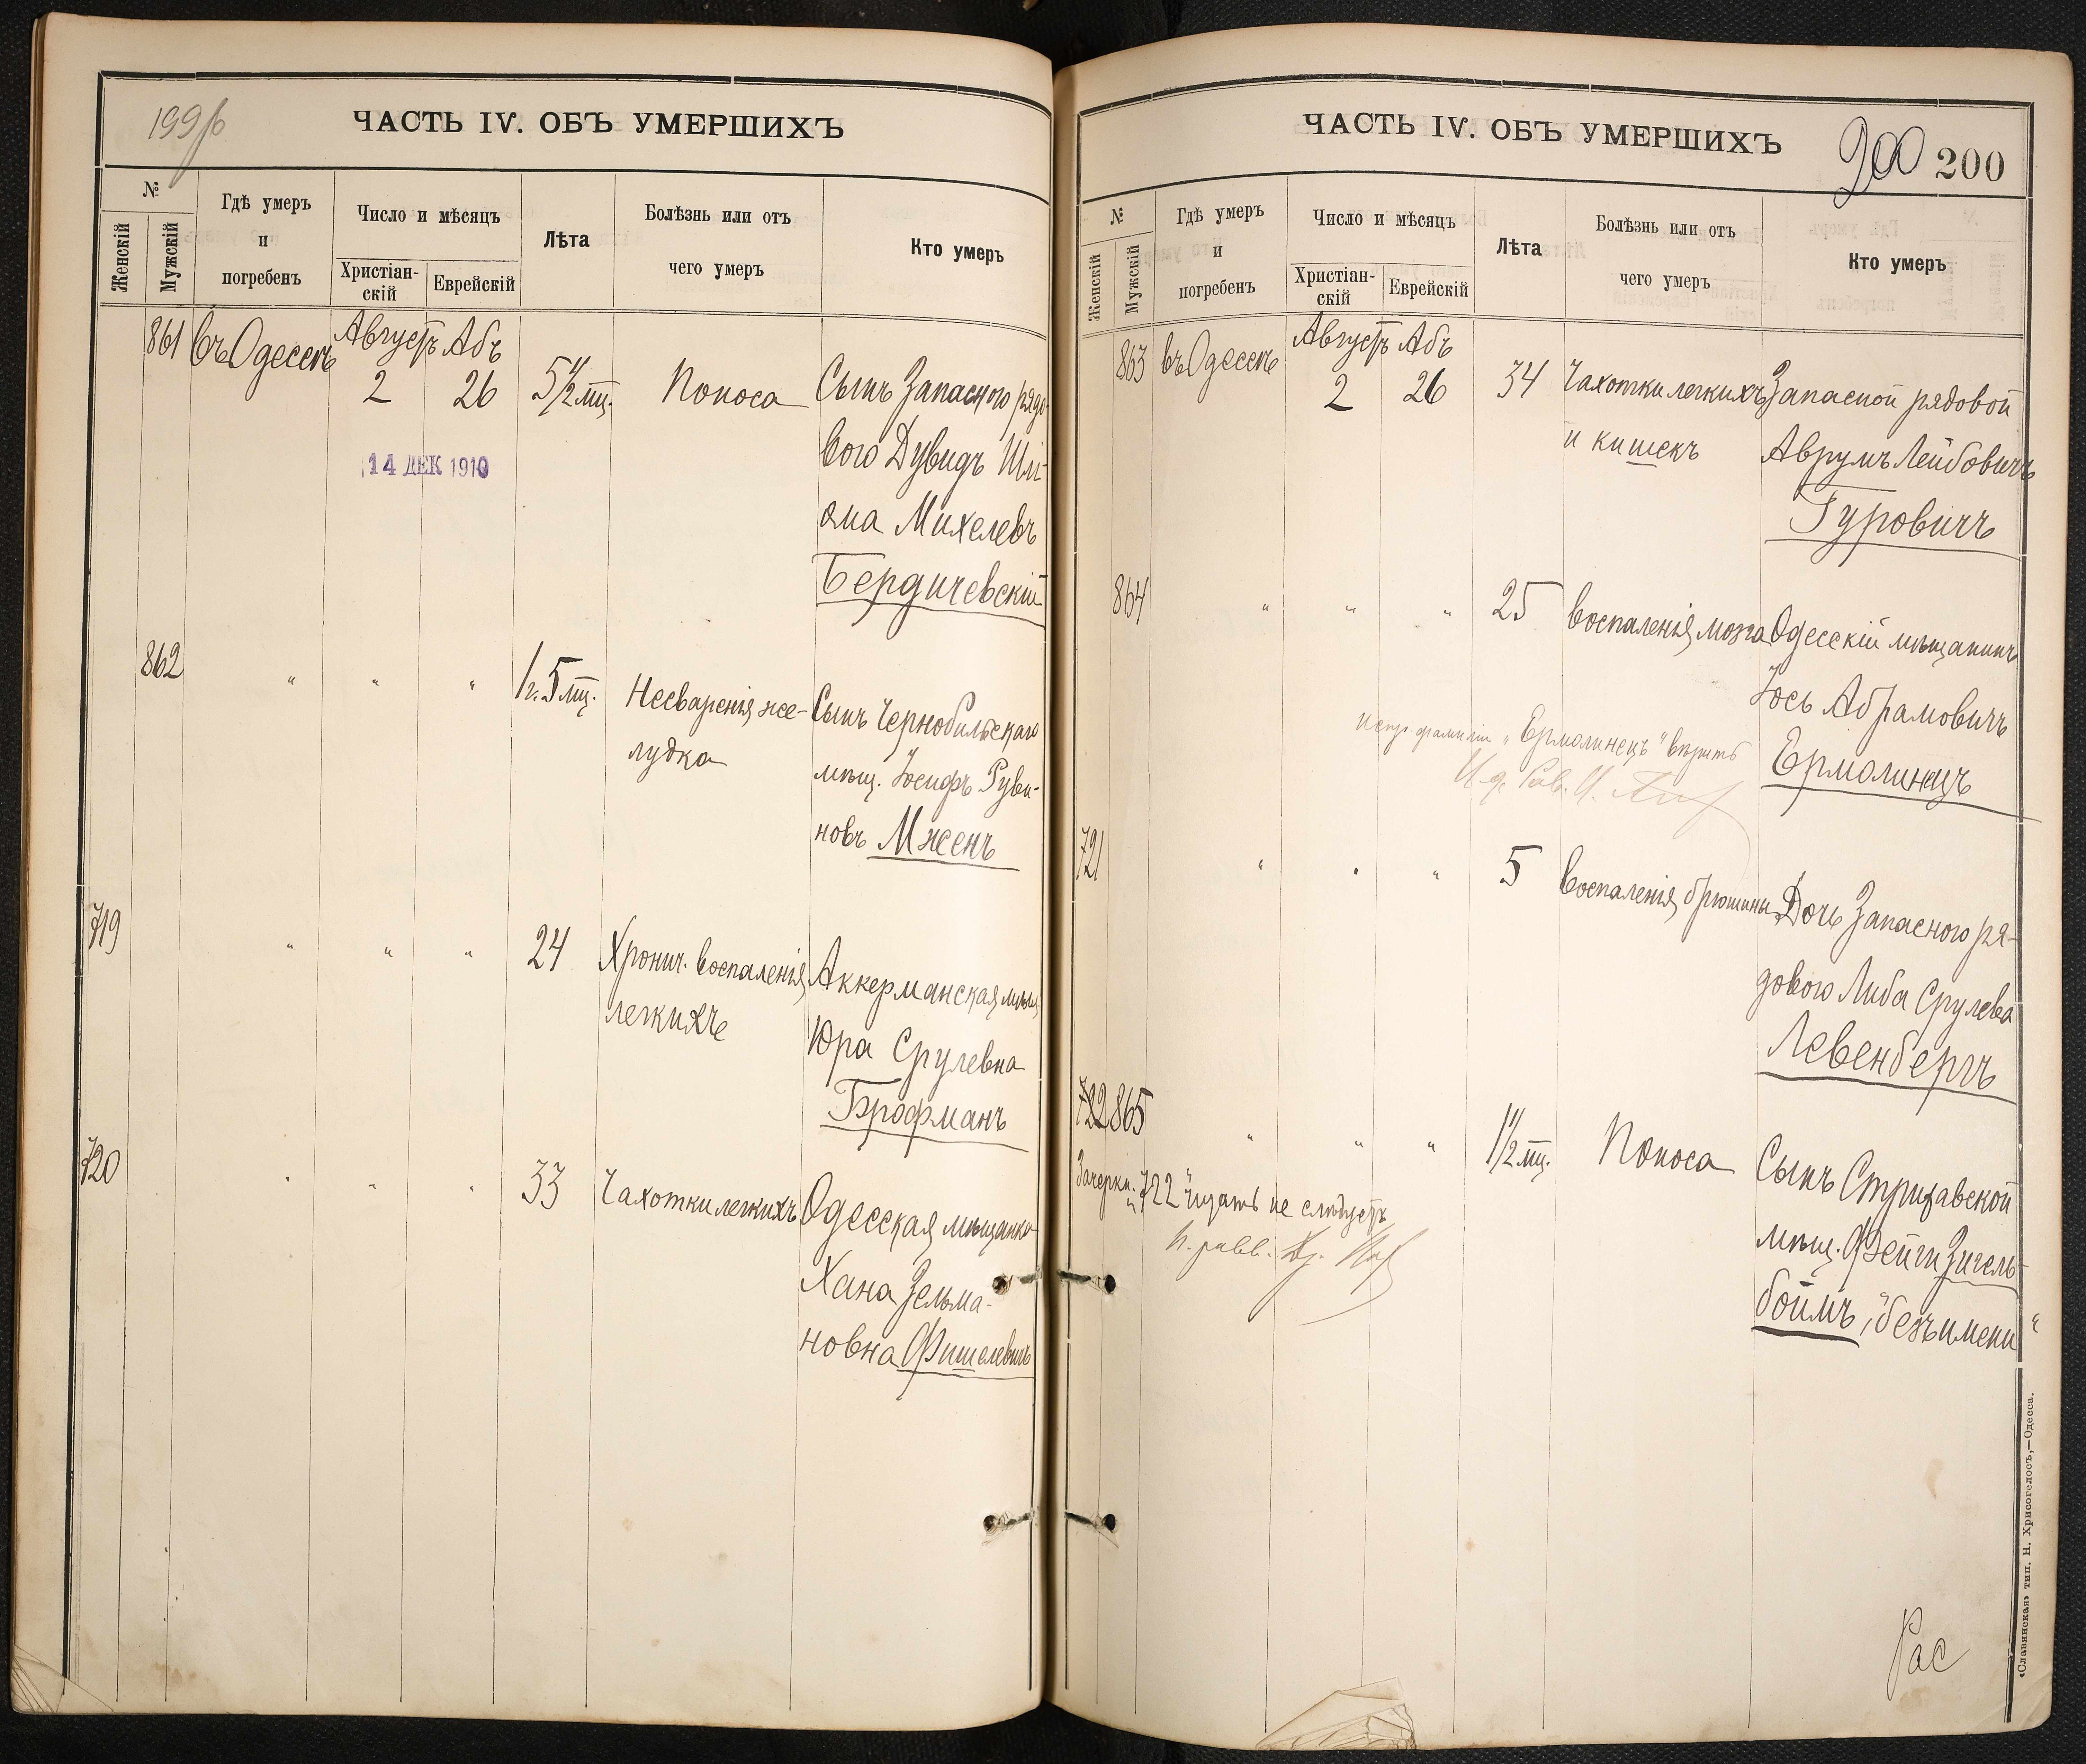 199/б
ЧАСТЬ IV. ОБЪ УМЕРШИХЪ
№
Женскій
Мужскій
Гдѣ умеръ
и
погребенъ
Число и мѣсяцъ
Христіан-
скій
Еврейскій
Лѣта
Болѣзнь или отъ
чего умеръ
Кто умеръ
861 въ Одессѣ Августъ Абъ
2 26 5 1/2 мц. Поноса Сынъ Запасного рядо-
вого Дувидъ Шлi-
14 ДЕК 1910
ома Михелевъ
Бердичевскій
862 " " " 1 г. 5 мц. Несваренія же- Сынъ Чернобильскаго
лудка мѣщ. Іосифъ Руви-
новъ Мженъ
719 " " " 24 Хронич. воспаленія Аккерманская мѣщ.
легкихъ Юра Срулевна
Брофманъ
720 " " " 33 Чахотки легкихъ Одесская мѣщанка
Хана Зельма-
новна Фишелевичъ
ЧАСТЬ IV. ОБЪ УМЕРШИХЪ
200 200
№
Женскій
Мужскій
Гдѣ умеръ
и
погребенъ
Число и мѣсяцъ
Христіан-
скій
Еврейскій
Лѣта
Болѣзнь или отъ
чего умеръ
Кто умеръ
863 въ Одессѣ Августъ Абъ
2 26 34 Чахотки легкихъ Запасной рядовой
и кишекъ Аврумъ Лейбовичъ
Гуровичъ
864 " " " 25 воспаленія мозга Одесскій мѣщанинъ
Іось Абрамовичъ
испр. фамиліи "Ермолинецъ" вѣрить
Ермолинецъ
И. д. Рав.
721 " " " 5 воспаленія брюшины Дочь Запасного ря-
дового Либа Срулева
Левенбергъ
722 865 " " " 1 1/2 мц. Поноса Сынъ Стрижавской
Зачеркн. "722" читать не слѣдуетъ
мѣщ. Фейги Зигель-
боймъ, "безъ имени"
Рас
«Славянская» тип. Н. Хрисогелосъ,—Одесса.